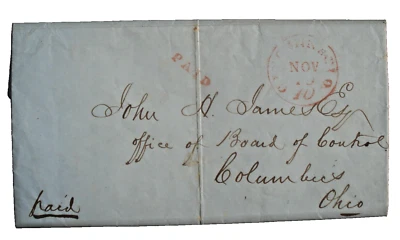 PAID
NOV
10
John H. James Esq
office of Board of Control
Columbus
Ohio
paid